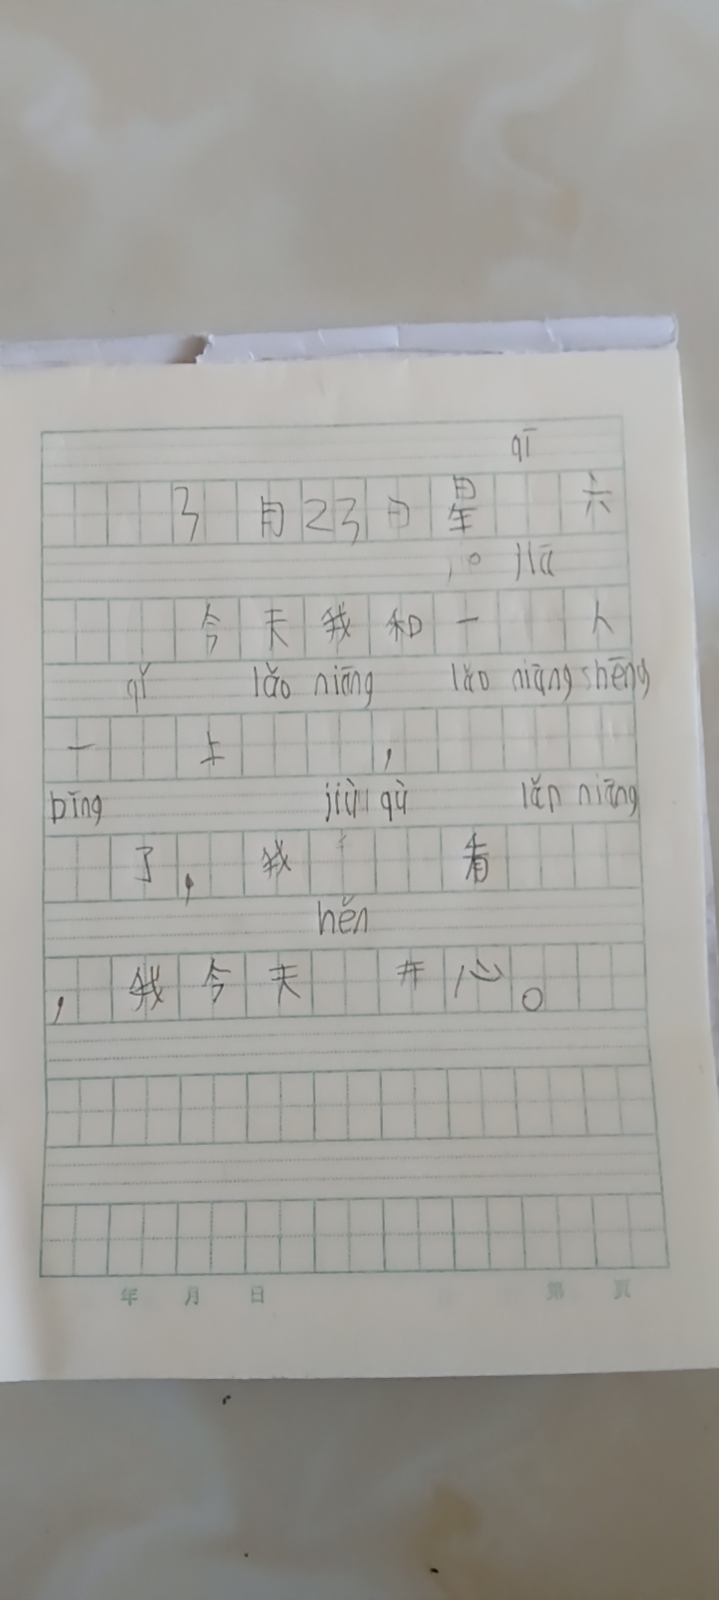 qī
3月23日星 六
jiā
今天我和一 人
qǐ lǎo niāng lǎo niāng shēng
一 上 ,
bīng jiù qù lǎn niāng
了, 我 看
hěn
, 我今天 开心。
年 月 日 第 页